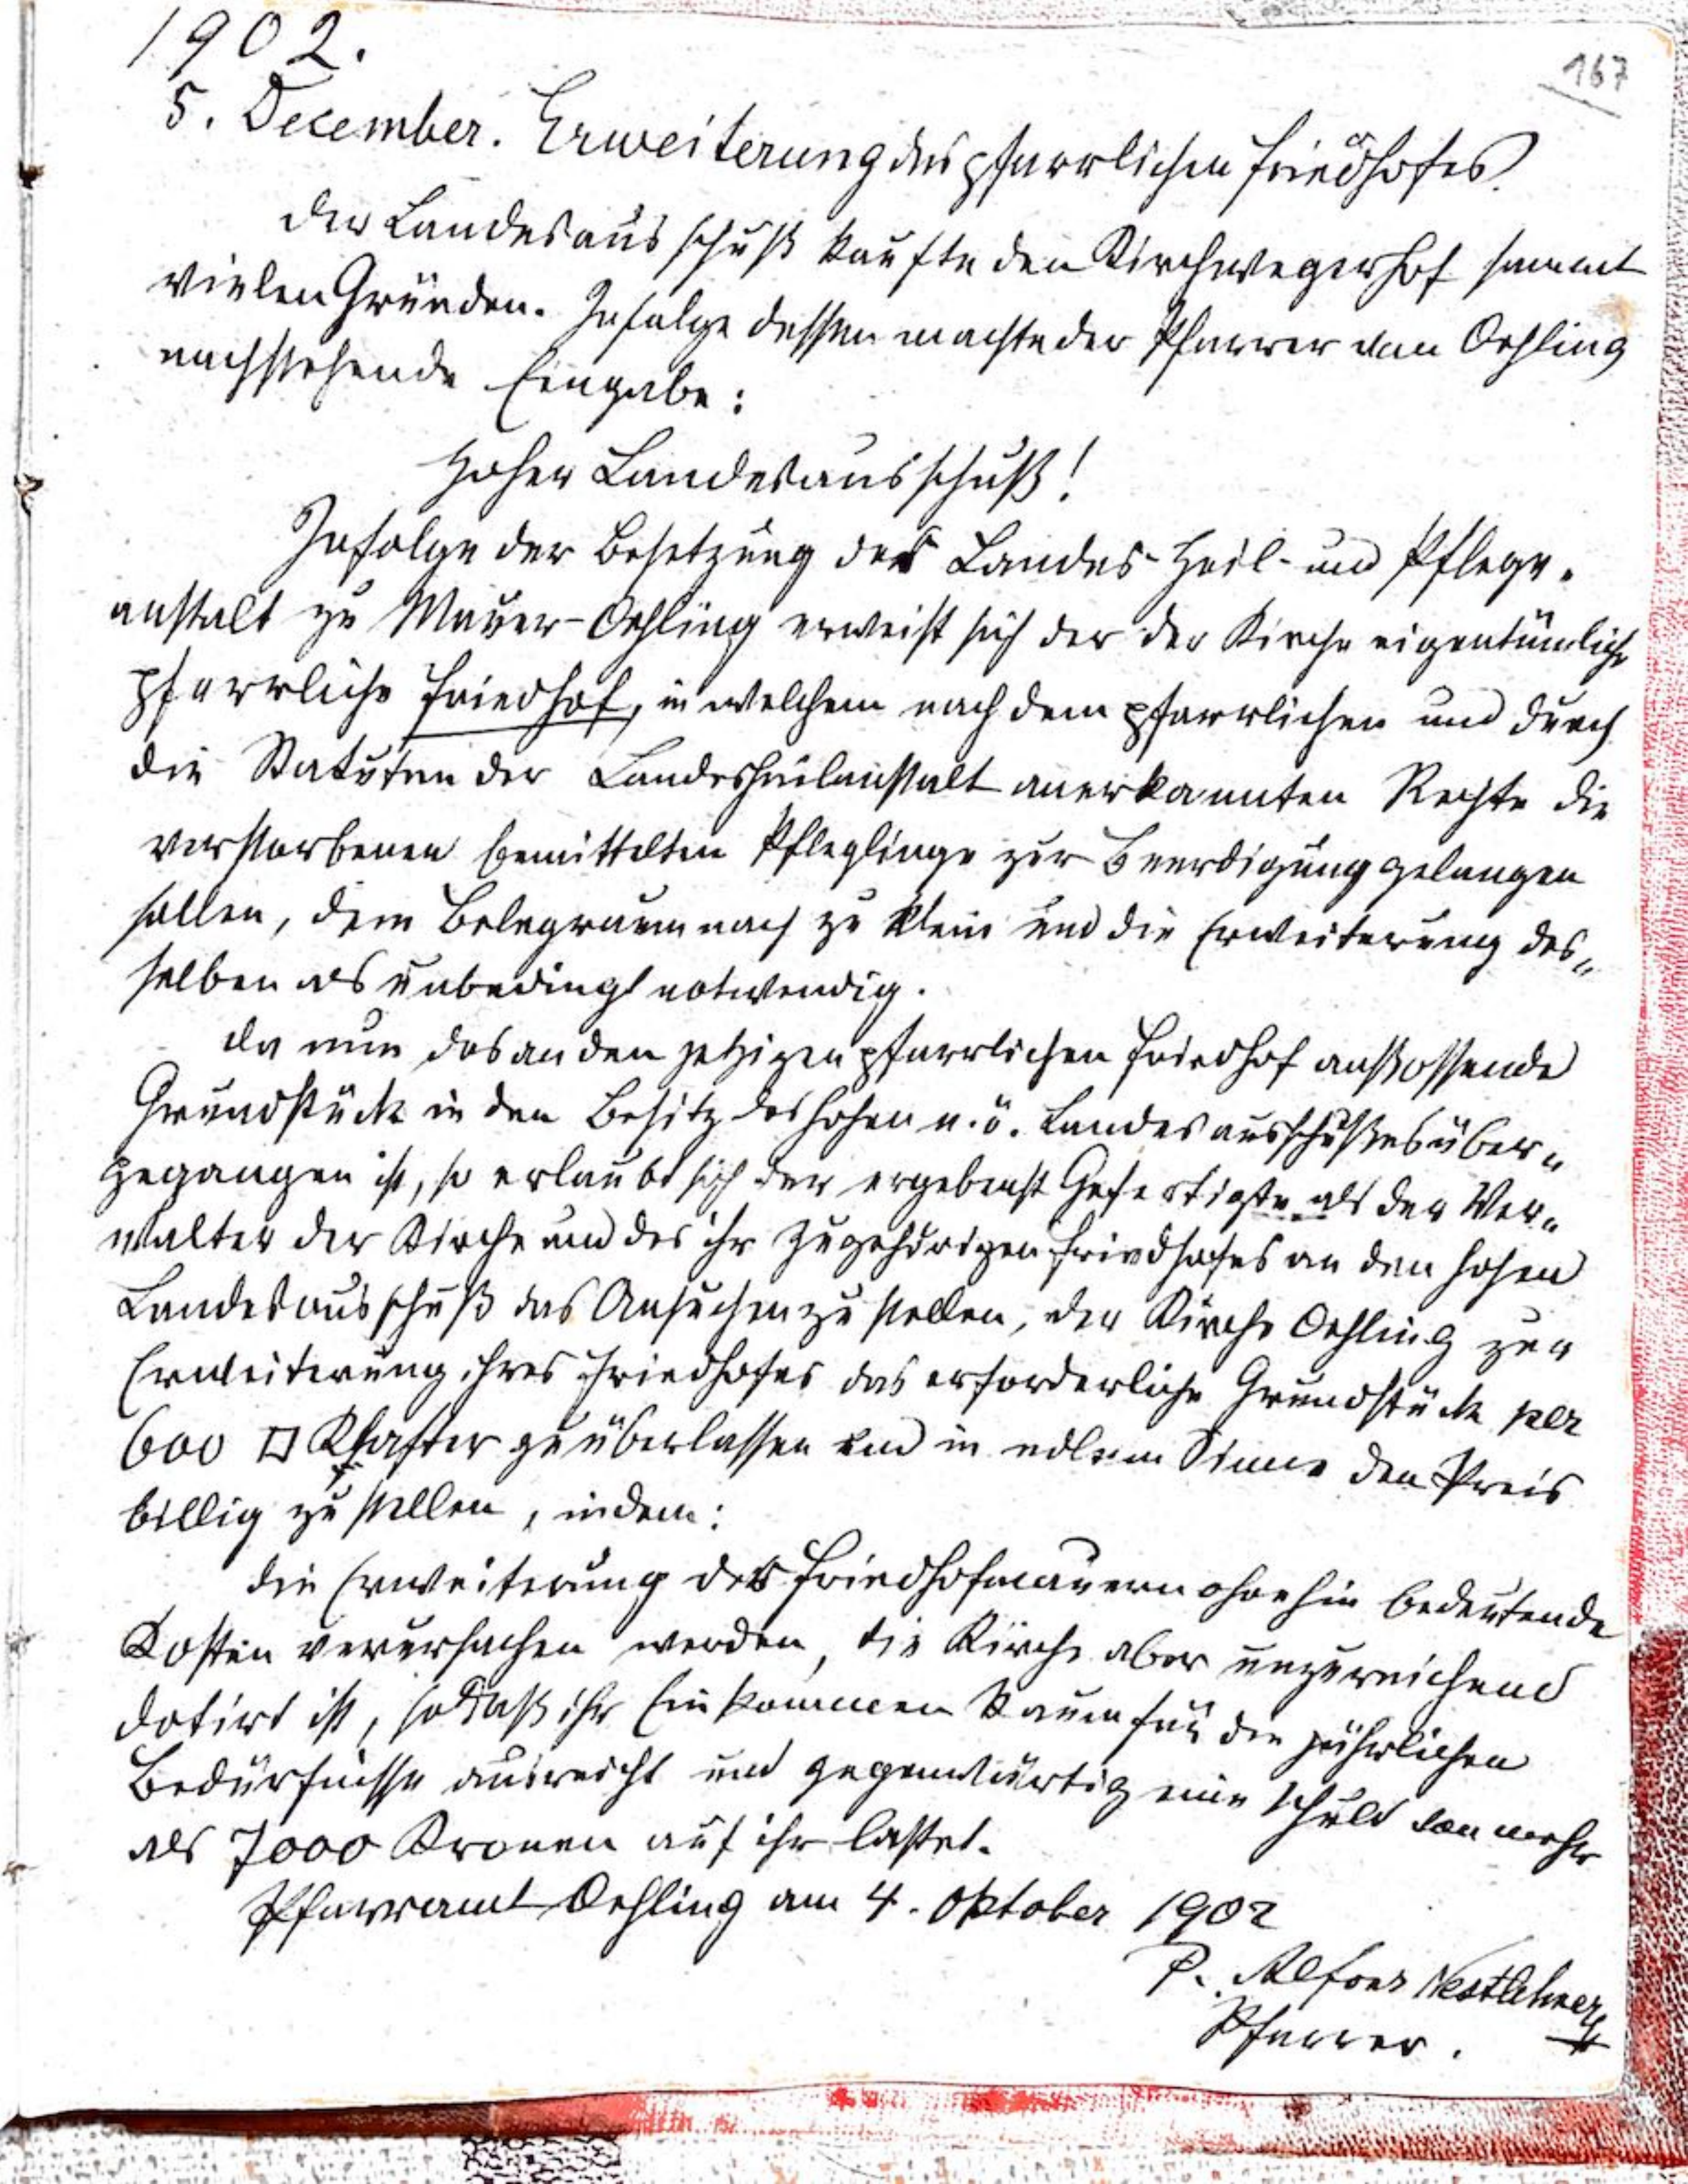 1902.
167
5. December. Erweiterung des pfarrlichen Friedhofes.
Der Landesausschuß kaufte den Kirchwegerhof sammt
vielen Gründen. Infolge dessen machte der Pfarrer von Oehling
nachstehende Eingabe:
Hoher Landesausschuß!
Infolge der Besetzung der Landes-Heil- und Pflege-
anstalt zu Mauer-Oehling erweist sich der der Kirche eigentümliche
pfarrliche Friedhof, in welchem nach dem pfarrlichen und durch
die Statuten der Landesheilanstalt anerkannten Rechte die
verstorbenen bemittelten Pfleglinge zur Beerdigung gelangen
sollen, dem Belegraum nach zu klein und die Erweiterung des„
selben als unbedingt notwendig.
Da nun das an den jetzigen pfarrlichen Friedhof anstossende
Grundstück in den Besitz des hohen n.ö. Landesausschußes über„
gegangen ist, so erlaubt sich der ergebenst Gefertigte als der Ver„
walter der Kirche und des ihr zugehörigen Friedhofes an den hohen
Landesausschuß das Ansuchen zu stellen, der Kirche Oehling zur
Erweiterung ihres Friedhofes das erforderliche Grundstück per
600 □ Klafter zu überlassen und in edlem Sinne den Preis
billig zu stellen, indem:
die Erweiterung der Friedhofmauern ohnehin bedeutende
Kosten verursachen werden, die Kirche aber unzureichend
dotirt ist, sodaß ihr Einkommen kaum für die jährlichen
Bedürfnisse ausreicht und gegenwärtig eine Schuld von mehr
als 7000 Kronen auf ihr lastet.
Pfarramt Oehling am 4. Oktober 1902
P. Alfons Nestlehner
Pfarrer.